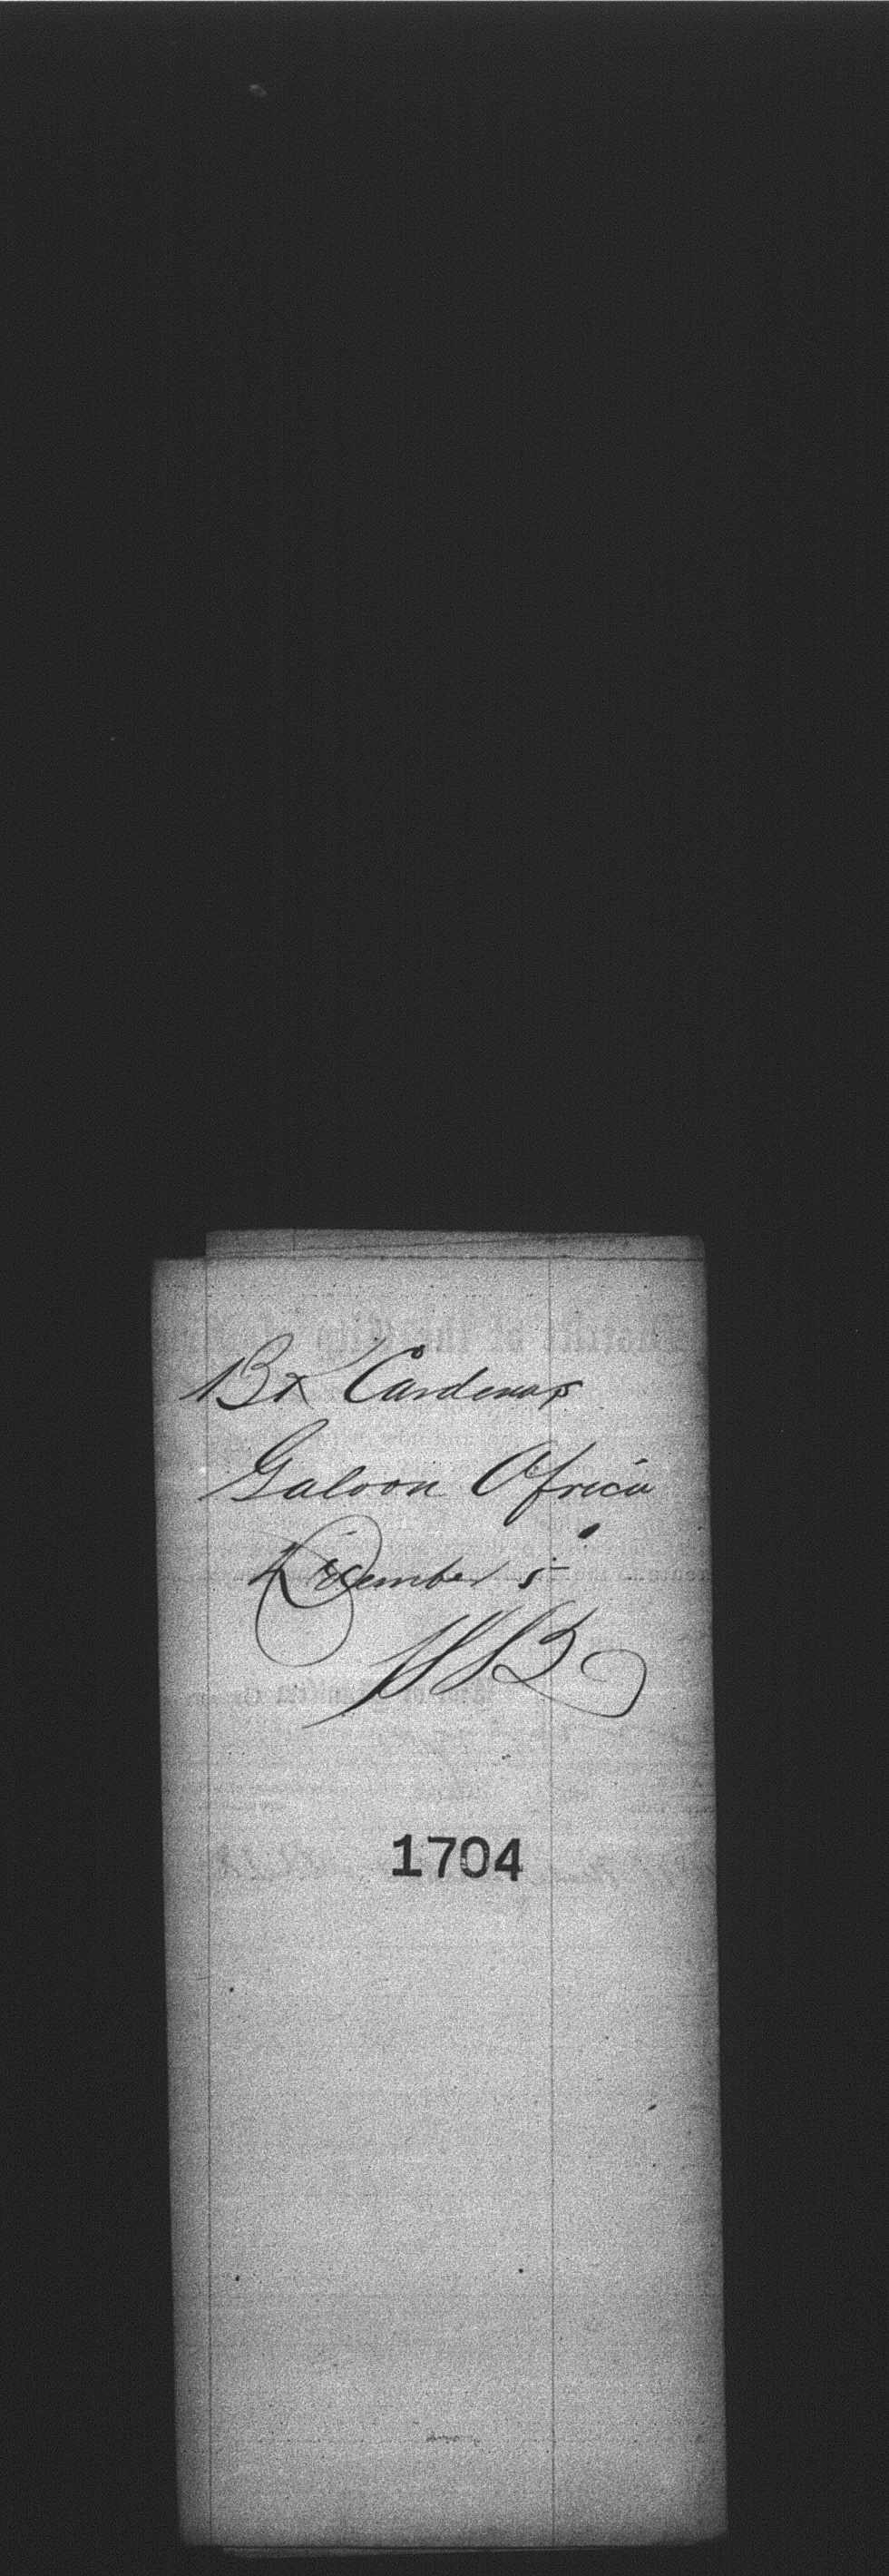 Bk Cardenas
Galoon Africa
December 5
1704